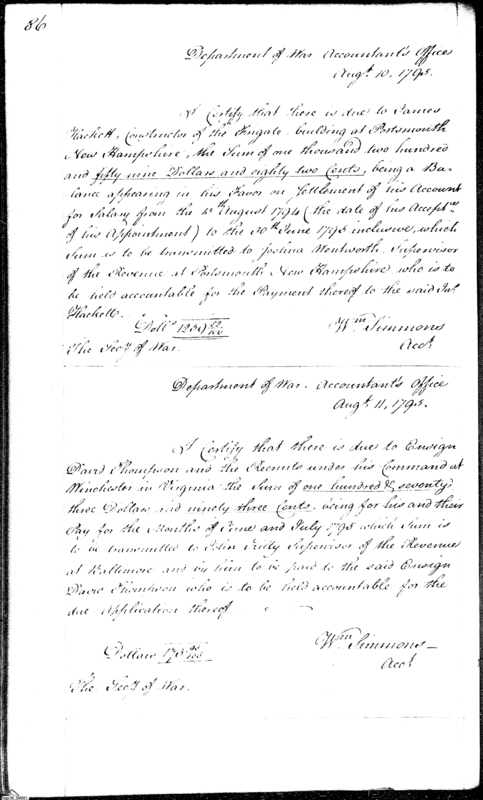 86
Department of War. Accountant's Office
Augt. 10. 1795.
I Certify that there is due to James
Hackett, Constructor of the Frigate building at Portsmouth
New Hampshire, the Sum of one thousand two hundred
and fifty nine Dollars and eighty two Cents, being a Ba-
lance appearing in his Favor on Settlement of his Account
for Salary from the 15th August 1794 (the date of his Accept
of his Appointment) to the 30th June 1795 inclusive, which
Sum is to be transmitted to Joshua Wentworth Supervisor
of the Revenue at Portsmouth New Hampshire who is to
be held accountable for the Payment thereof to the said Jas.
Hackett.
Dolls. 1259 82/100
Wm Simmons
The Secy. of War.
Acct.
Department of War. Accountant's Office
Augt. 11, 1795.
I Certify that there is due to Ensign
David Thompson and the Recruits under his Command at
Winchester in Virginia the Sum of one hundred & seventy
three Dollars and ninety three Cents, being for his and their
Pay for the Months of June and July 1795 which Sum is
to be transmitted to Supervisor of the Revenue
at Baltimore and by him to be paid to the said Ensign
David Thompson who is to be held accountable for the
due Application thereof
Dollars 173 93/100
Wm Simmons
Acct.
The Secy. of War.